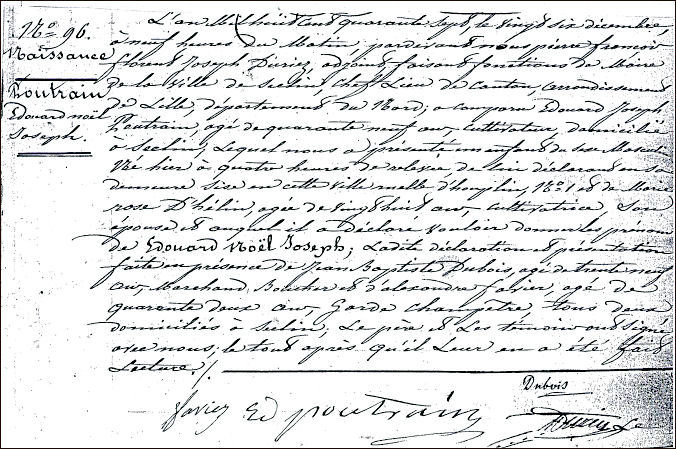 N.o 96.
Naissance
Poutrain
Edouard noël
Joseph.
L'an Mil huit cent quarante sept, le vingt six décembre,
à neuf heures du Matin, pardevant nous pierre françois
florent Joseph adjoint faisant fonctions de Maire
de la ville de Seclin, chef Lieu de Canton, arrondissement
de Lille, département du Nord; a comparu Edouard Joseph
Poutrain, agé de quarante neuf ans, cultivateur, domicilié
à Seclin; Lequel nous a présenté un enfant du sexe Masculin
Né hier à quatre heures de relevée, de lui déclarant en sa
demeure sise en cette ville N.o 1 et de Marie
rose D'hélin, agée de vingt huit ans, cultivatrice, son
épouse et auquel il a déclaré vouloir donner les prénoms
de Edouard Noël Joseph; Ladite déclaration et présentation
faite en présence de Jean Baptiste Dubois, agé de trente neuf
ans, Marchand Boucher et d'alexandre favier, agé de
quarante deux ans, Garde champêtre, tous deux
domiciliés à Seclin; Le père et Les témoins ont signé
avec nous; le tout après qu'il Leur en a été fait
Lecture./.
Dubois
favier Ed poutrain